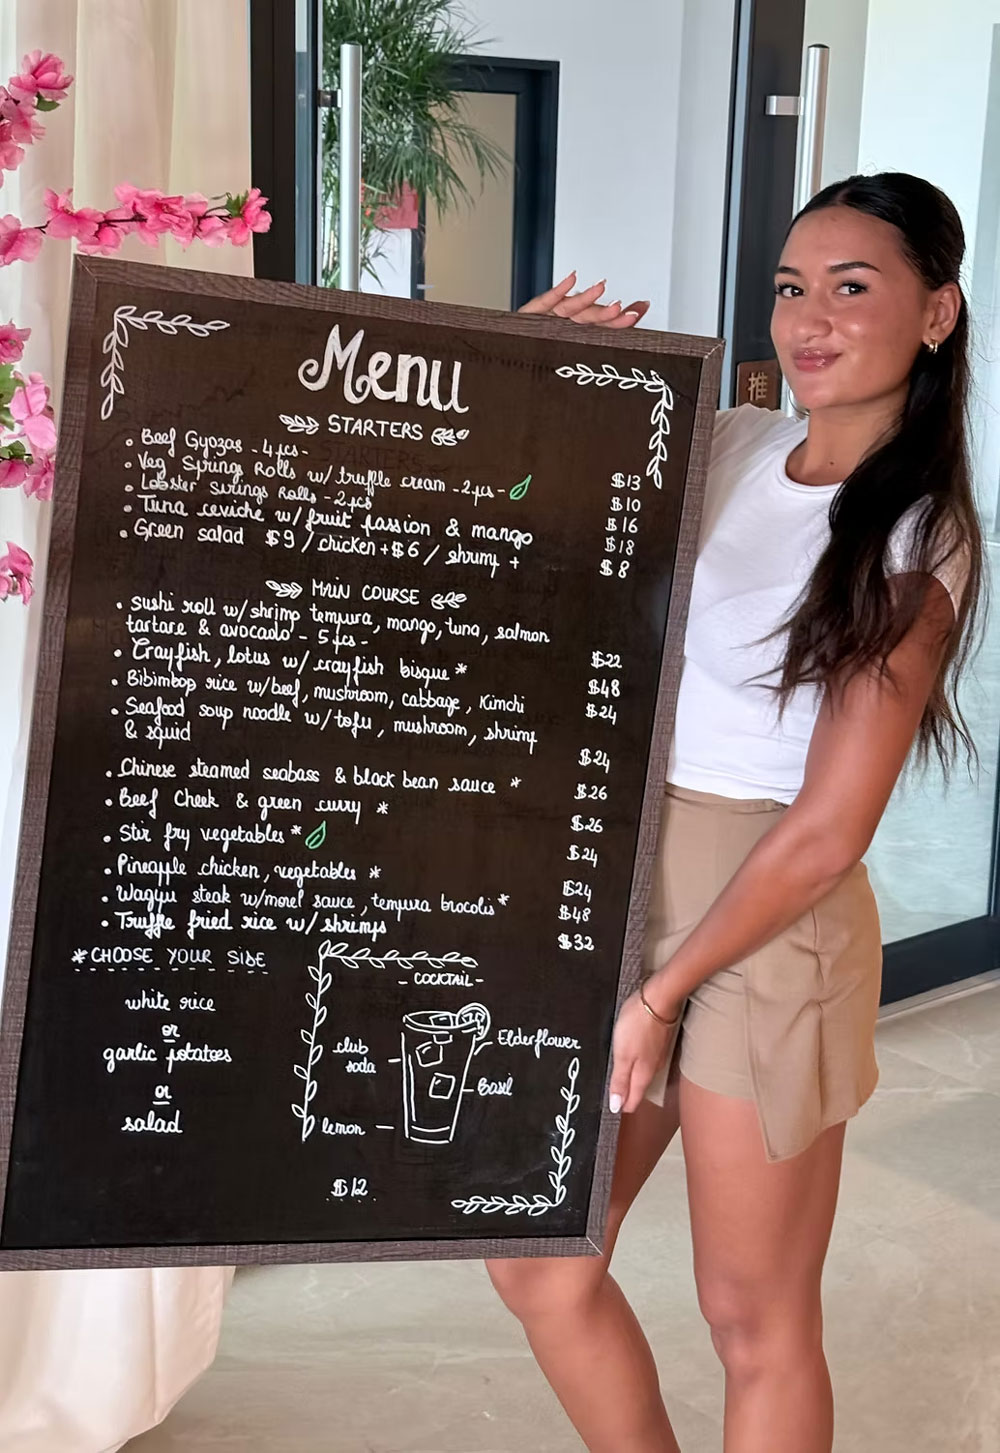 Menu
STARTERS
• Beef Gyozas - 4 pcs - $13
• Veg Springs Rolls w/ truffle cream - 2 pcs - $10
• Lobster Springs Rolls - 2 pcs $16
• Tuna ceviche w/ fruit passion & mango $18
• Green salad $9 / chicken + $6 / shrimp + $8
MAIN COURSE
• Sushi roll w/ shrimp tempura, mango, tuna, salmon
tartare & avocado - 5 pcs - $22
• Crayfish, lotus w/ crayfish bisque * $48
• Bibimbop rice w/ beef, mushroom, cabbage, Kimchi $24
• Seafood soup noodle w/ tofu, mushroom, shrimp
& squid $24
• Chinese steamed seabass & black bean sauce * $26
• Beef Cheek & green curry * $26
• Stir fry vegetables * $24
• Pineapple chicken, vegetables * $24
• Wagyu steak w/ morel sauce, tempura brocolis * $48
• Truffle fried rice w/ shrimps $32
* CHOOSE YOUR SIDE
white rice
or
garlic potatoes
or
salad
- COCKTAIL -
Elderflower
club
soda
Basil
lemon
$12
推